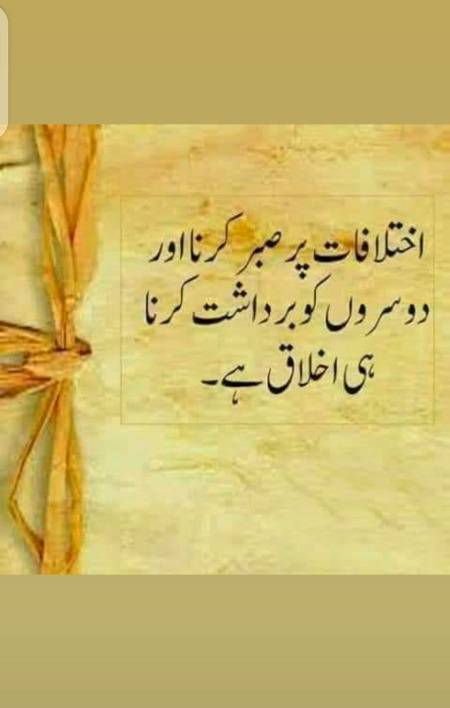 اختلافات پر صبر کرنا اور
دوسروں کو برداشت کرنا
ہی اخلاق ہے۔